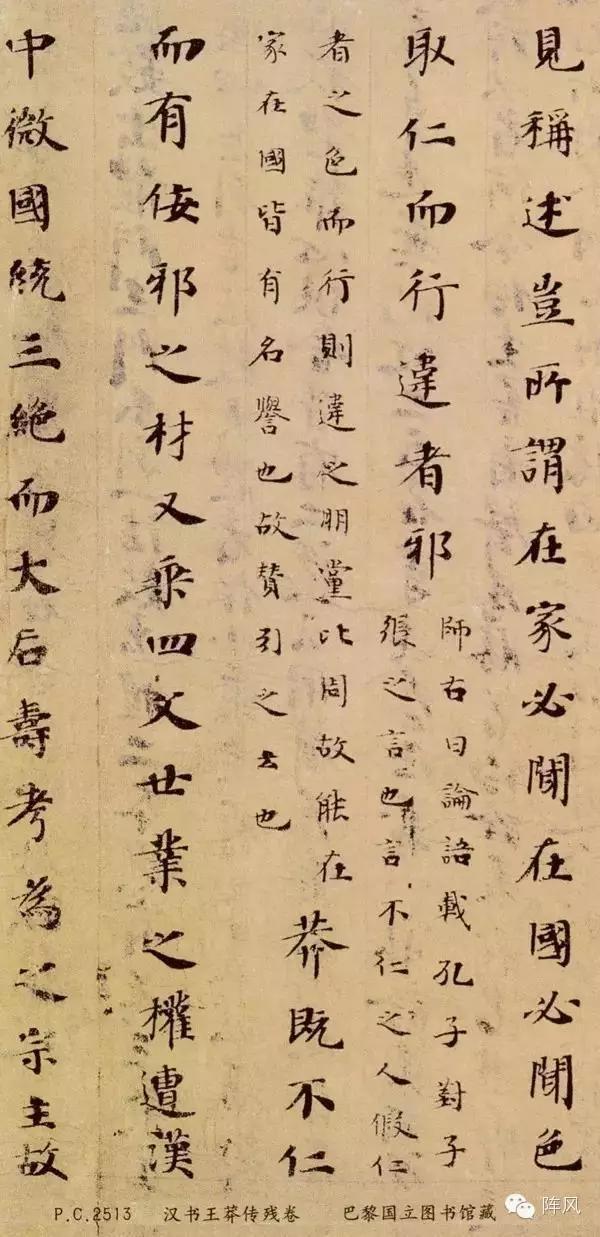 見稱述豈所謂在家必聞在國必聞色
取仁而行違者邪
師古曰論語載孔子對子
張之言也言不仁之人假仁
者之色而行則違之朋黨比周故能在
家在國皆有名譽也故賛引之云也
莽既不仁
而有佞邪之材又乘四父世業之權遭漢
中微國統三絕而大后壽考為之宗主故
P.C.2513 汉书王莽传残卷 巴黎国立图书馆藏
阵风